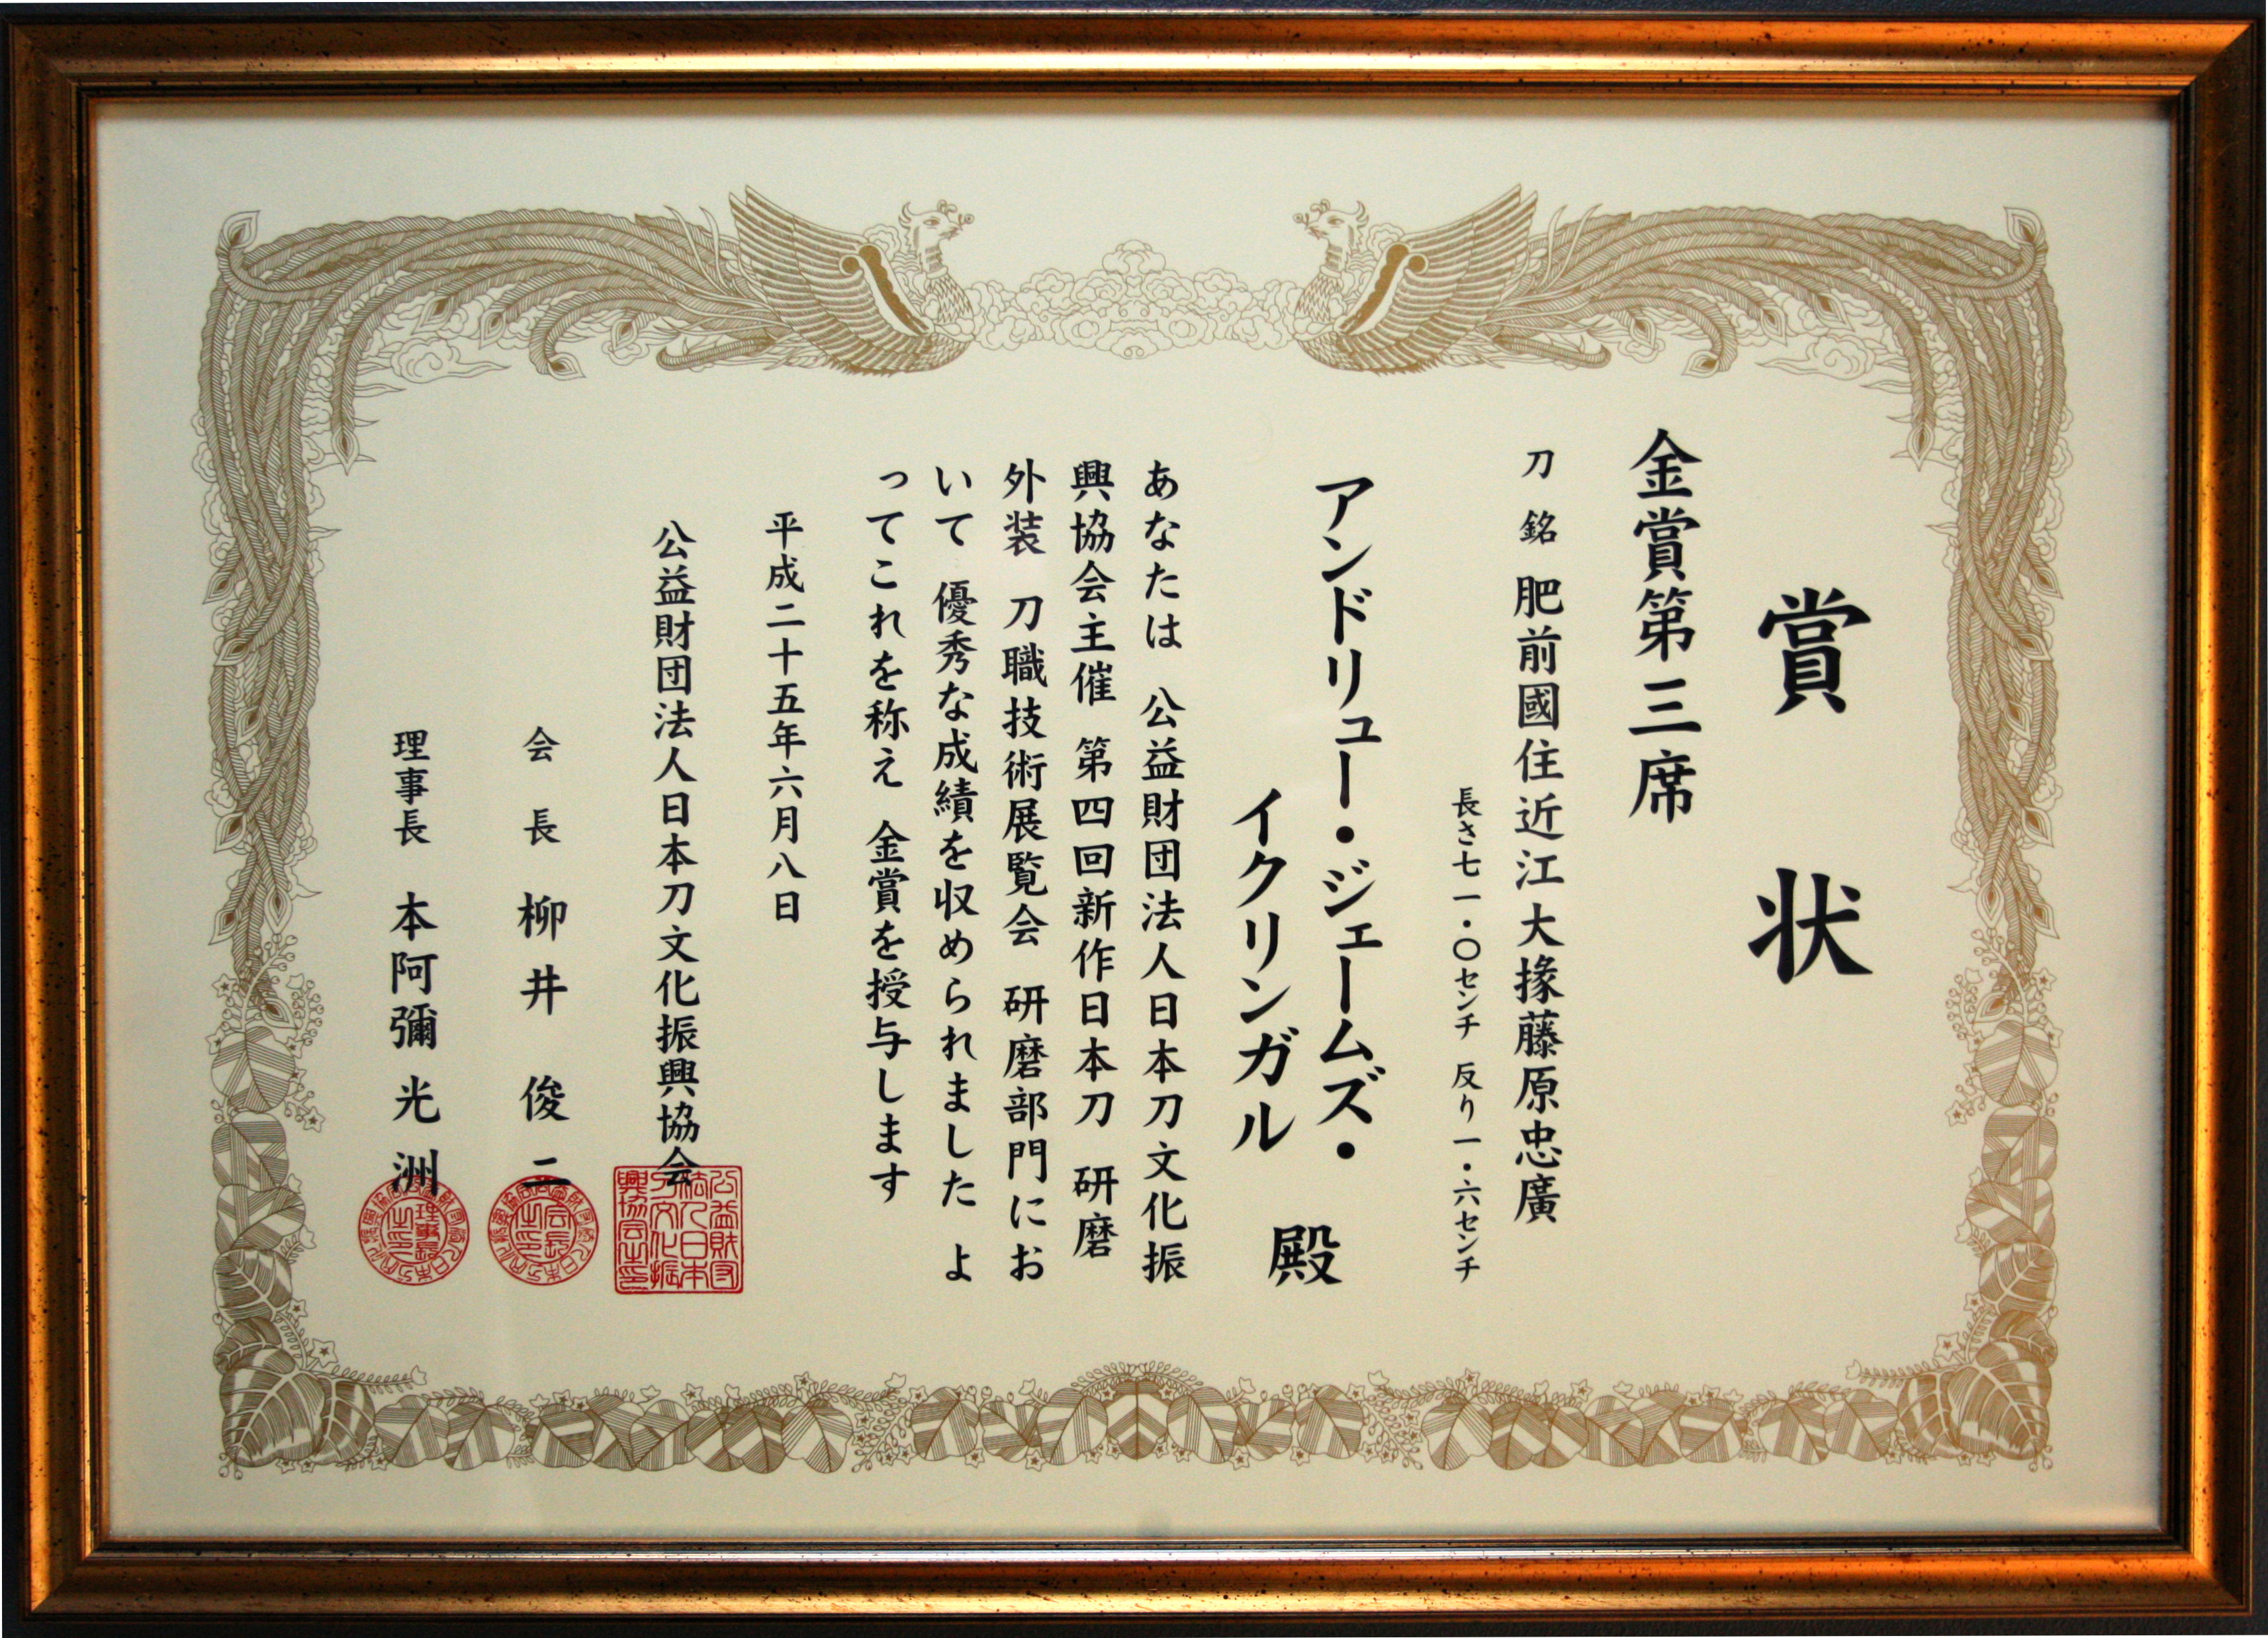 賞状
金賞第三席
刀 銘 肥前國住近江大掾藤原忠廣
長さ七一・〇センチ 反り一・六センチ
アンドリュー・ジェームズ・
イクリンガル 殿
あなたは 公益財団法人日本刀文化振
興協会主催 第四回新作日本刀 研磨
外装 刀職技術展覧会 研磨部門にお
いて 優秀な成績を収められました よ
ってこれを称え 金賞を授与します
平成二十五年六月八日
公益財団法人日本刀文化振興協会
会長 柳井俊二
理事長 本阿彌光洲